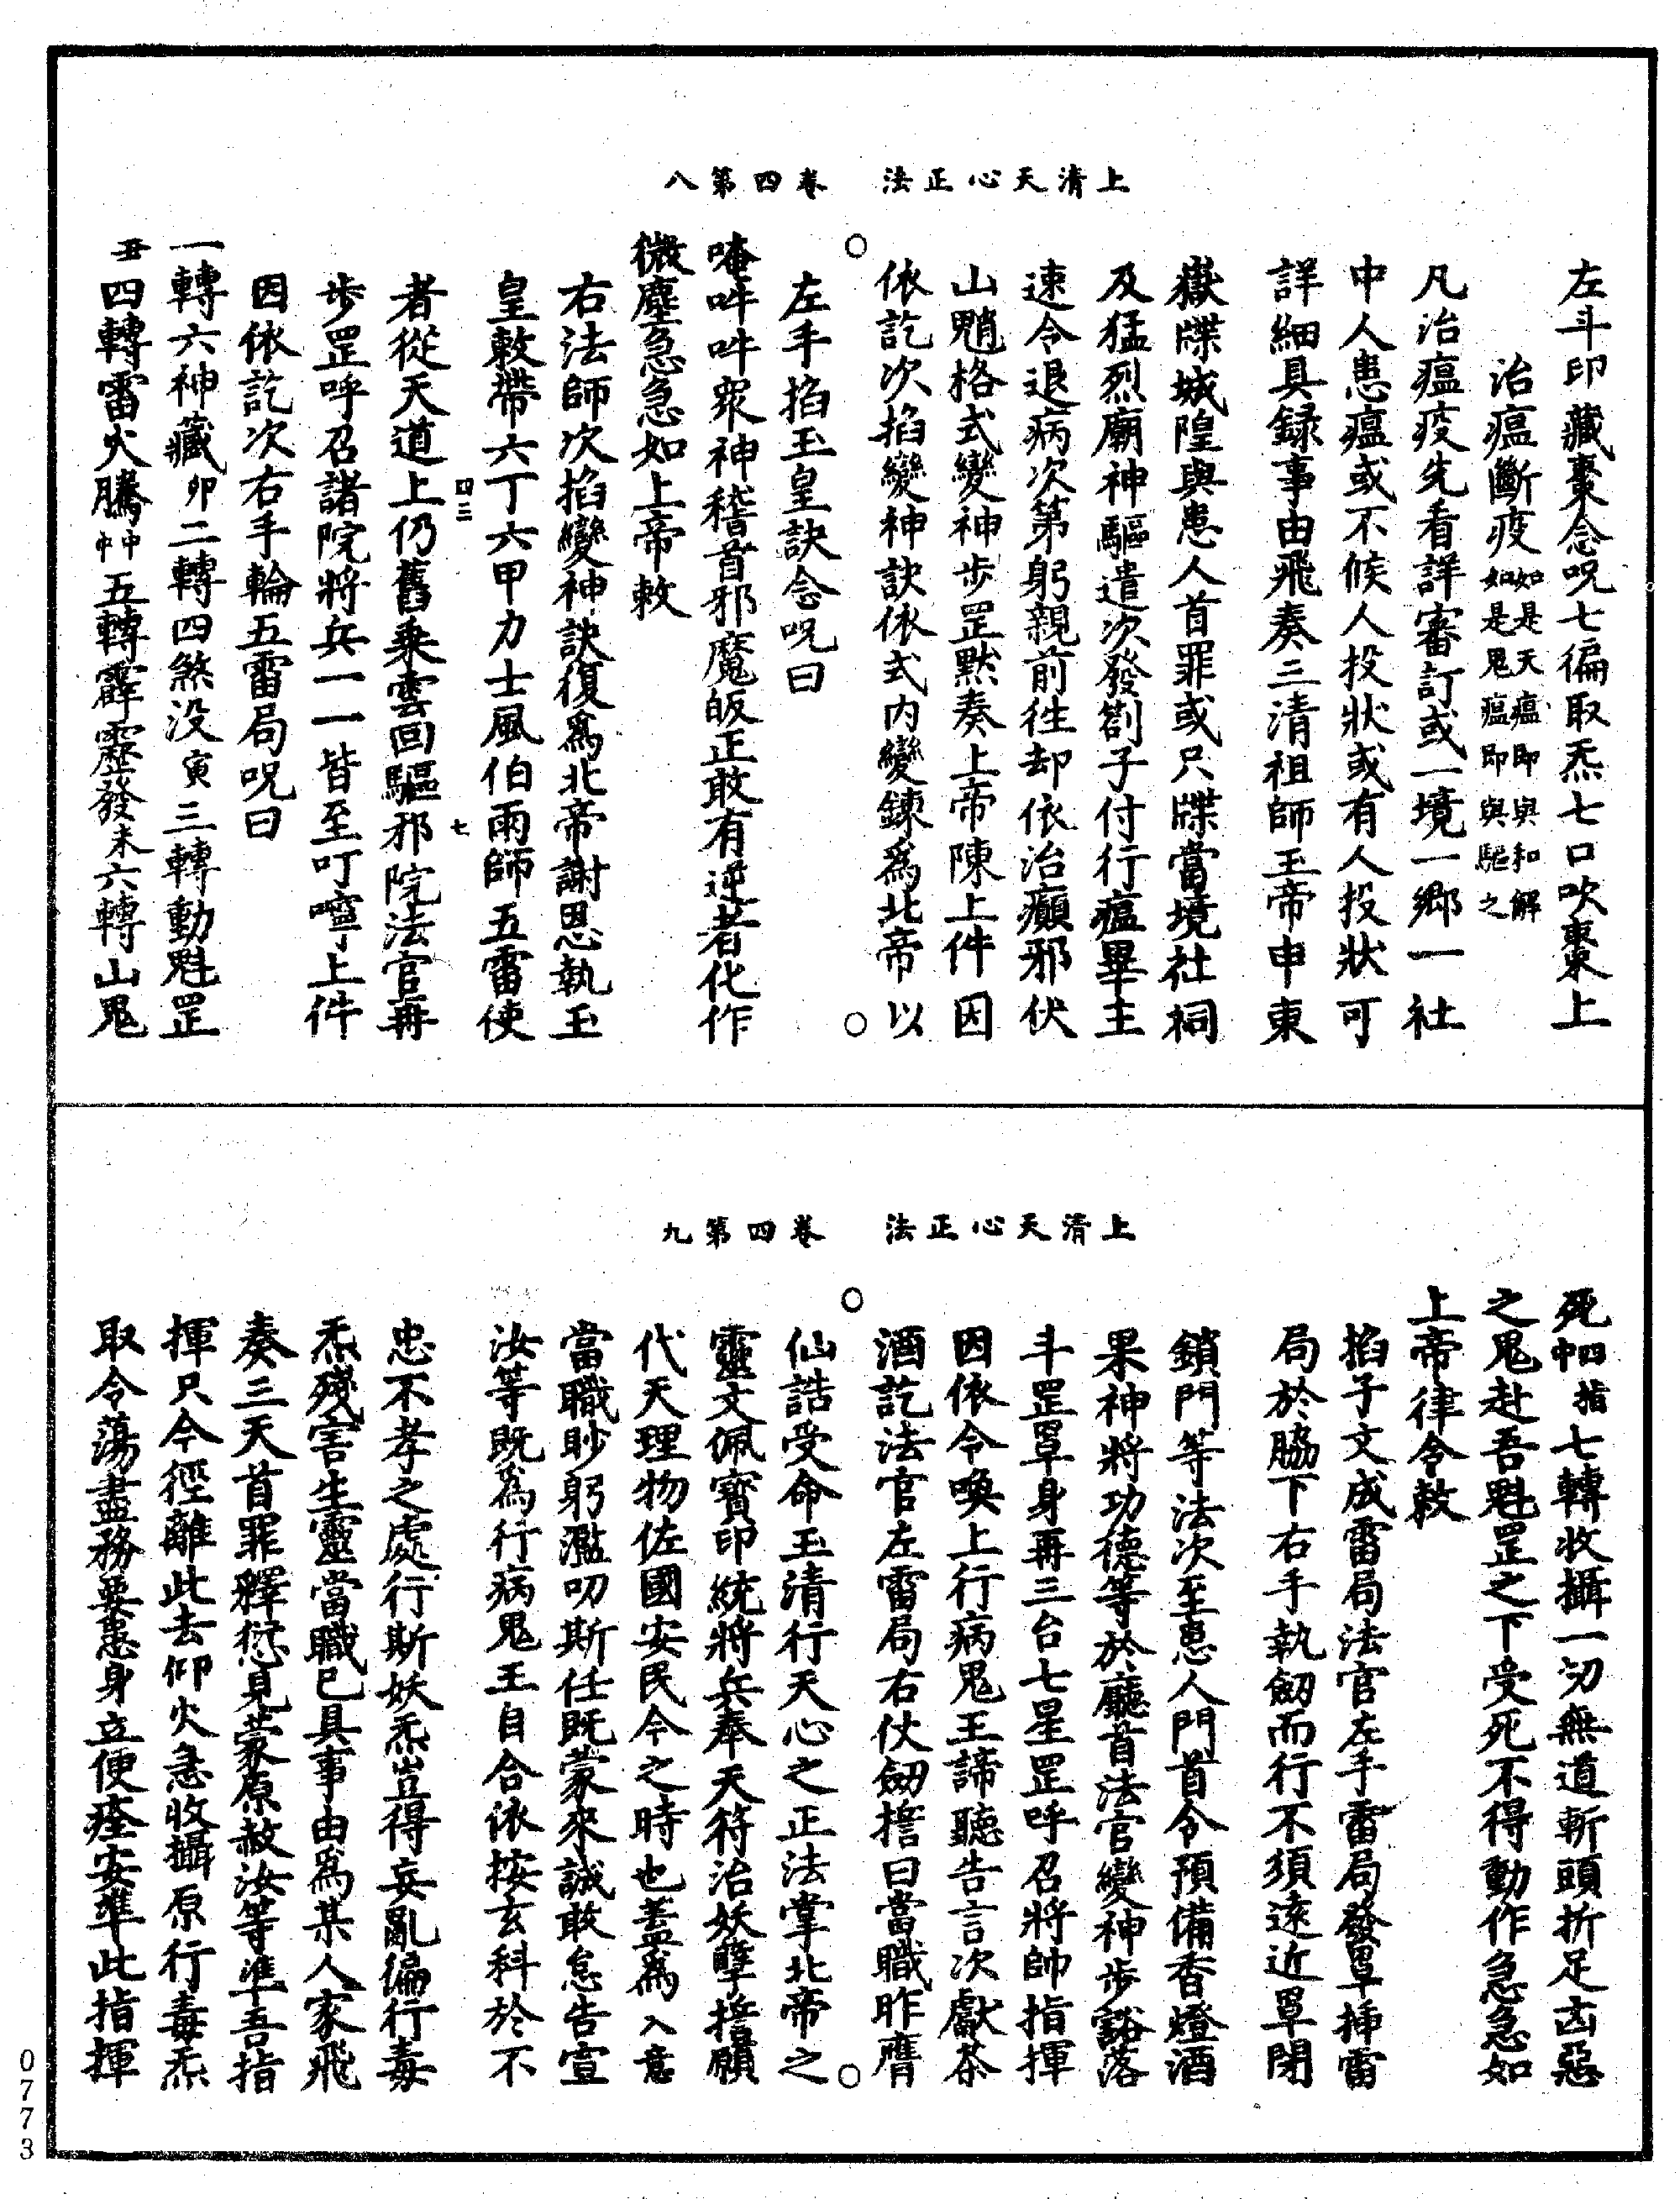 上清天心正法　卷四第八
左斗印藏棗念呪七徧取炁七口吹棗上
治瘟斷疫如是天瘟即與和解如是鬼瘟即與驅之
凡治瘟疫先看詳審訂或一境一鄉一社
中人患瘟或不候人投狀或有人投狀可
詳細具録事由飛奏三清祖師玉帝申東
嶽牒城隍與患人首罪或只牒當境社祠
及猛烈廟神驅遣次發劄子付行瘟畢主
速令退病次第躬親前往却依治癲邪伏
山魈格式變神步罡默奏上帝陳上件因
依訖次掐變神訣依式内變鍊爲北帝以
左手掐玉皇訣念呪曰
唵吽吽衆神稽首邪魔皈正敢有逆者化作
微塵急急如上帝敕
右法師次掐變神訣復爲北帝謝恩執玉
皇敕帶六丁六甲力士風伯雨師五雷使
四三　七
者從天道上仍舊乘雲回驅邪院法官再
步罡呼召諸院將兵一一皆至叮嚀上件
因依訖次右手輪五雷局呪曰
一轉六神藏卯二轉四煞没寅三轉動魁罡
丑四轉雷火騰中五轉霹靂發未六轉山鬼
上清天心正法　卷四第九
死中四指七轉收攝一切無道斬頭折足凶惡
之鬼赴吾魁罡之下受死不得動作急急如
上帝律令敕
掐子文成雷局法官左手雷局發罩揷雷
局於脇下右手執劒而行不須遠近罩閉
鎖門等法次至患人門首令預備香燈酒
果神將功德等於廳首法官變神步豁落
斗罡罩身再三台七星罡呼召將帥指揮
因依令喚上行病鬼王諦聽告言次獻茶
酒訖法官左雷局右仗劒擔曰當職昨膺
仙誥受命玉清行天心之正法掌北帝之
靈文佩寳印統將兵奉天符治妖孽擔願
代天理物佐國安民今之時也蓋爲入意
當職眇躬濫叨斯任既蒙來誠敢怠告宣
汝等既爲行病鬼王自合依按玄科於不
忠不孝之處行斯妖炁豈得妄亂偏行毒
炁殘害生靈當職已具事由爲某人家飛
奏三天首罪釋愆見蒙原赦汝等準吾指
揮只今徑離此去仰火急收攝原行毒炁
取令蕩盡務要患身立便痊安準此指揮
0773